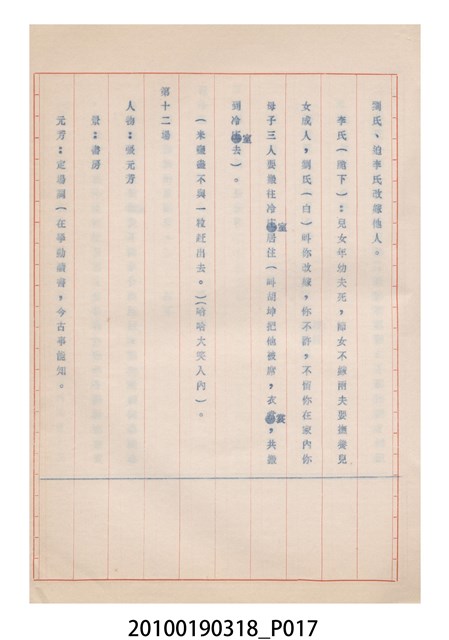 劉氏、迫李氏改嫁他人。
李氏（跪下）：兒女年幼夫死，節女不嫁兩夫要撫養兒
女成人，劉氏（白）叫你改嫁，你不許，不惜你在家內你
母子三人要搬往冷室居住（叫胡坤把他被席，衣裳，共搬
到冷室去）。
（米糧盡不與一粒赶出去。）（哈哈大笑入內）。
第十二場
人物：張元芳
景：書房
元芳：定場詞（在學勤讀書，今古事能知。
20100190318_P017